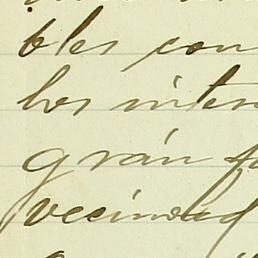 bles con
los inter
grán
vecindad